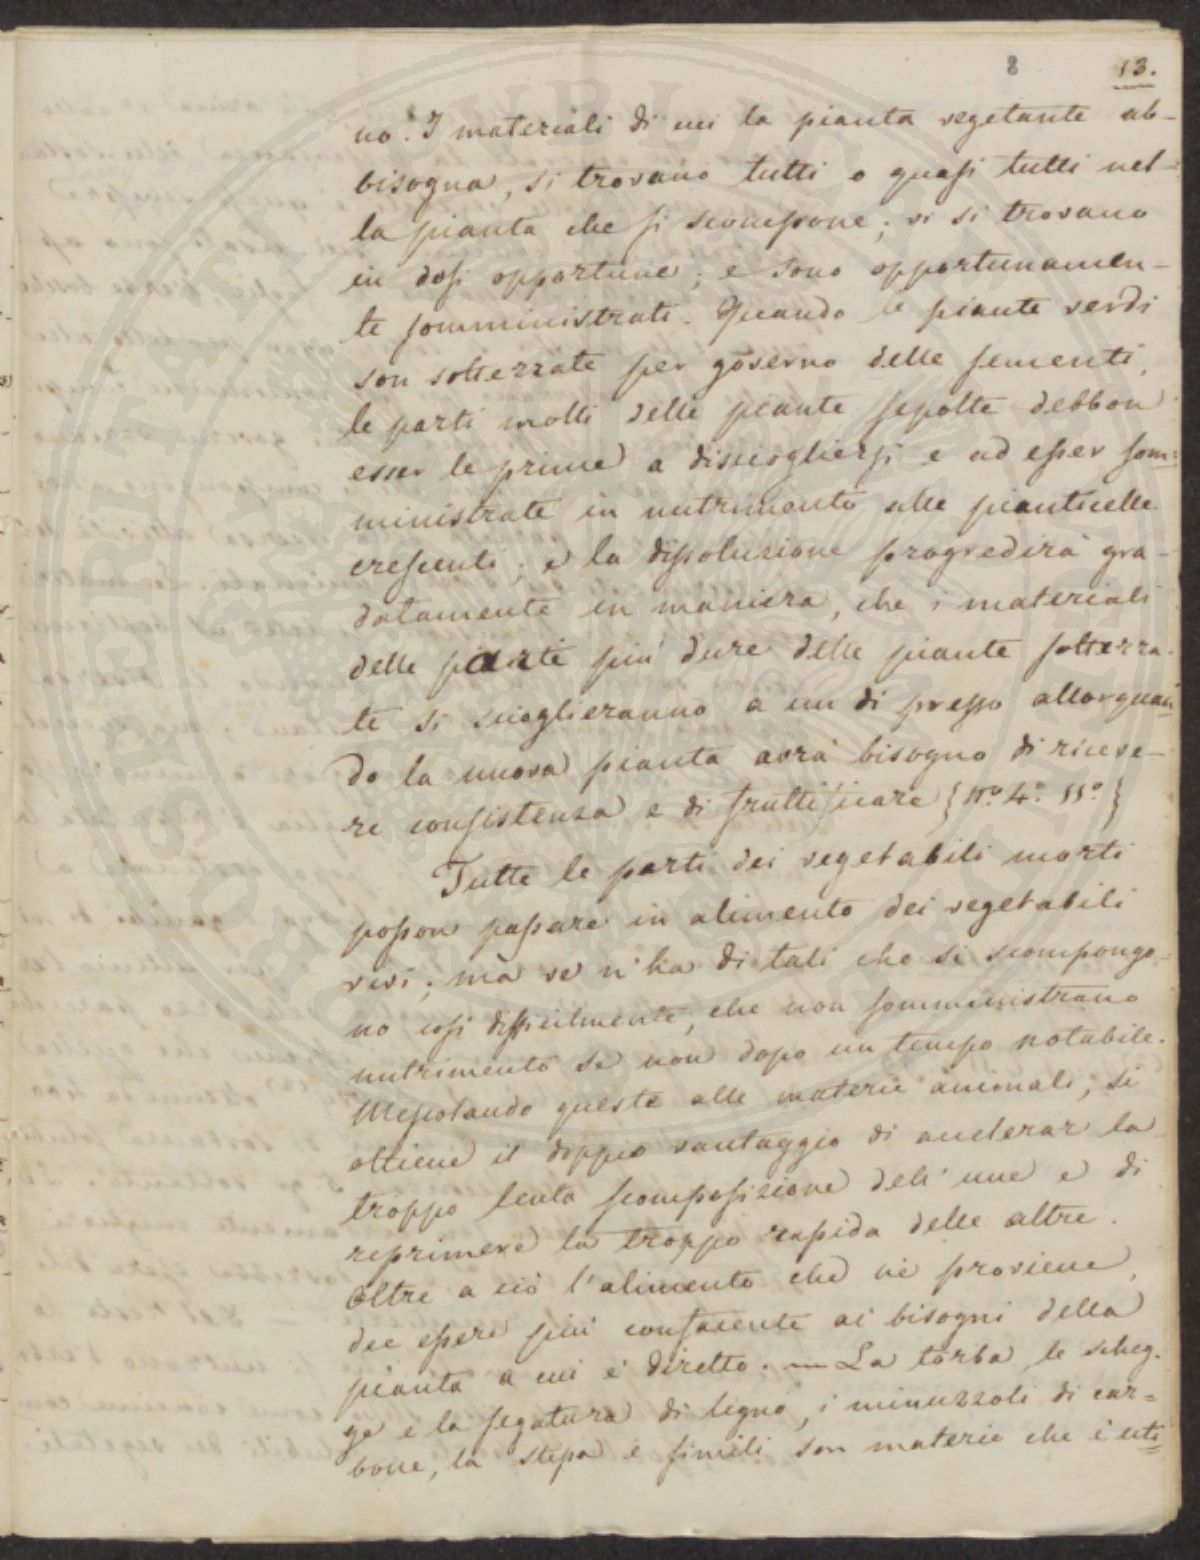 8 13.
no. I materiali di cui la pianta vegetante ab-
bisogna, si trovano tutti o quasi tutti nel-
la pianta che si scompone; vi si trovano
in dosi opportune; e sono opportunamen-
te somministrati. Quando le piante verdi
son sotterrate per governo delle sementi,
le parti molli delle piante sepolte debbon
esser le prime a disciogliersi e ad esser som=
ministrate in nutrimento alle pianticelle
crescenti; e la dissoluzione progredirà gra-
datamente in maniera, che i materiali
delle parti più dure delle piante sotterra-
te si scioglieranno a un di presso allorquan
do la nuova pianta avrà bisogno di riceve-
re consistenza e di fruttificare {n.o 4.o 11.o}
Tutte le parti dei vegetabili morti
posson passare in alimento dei vegetabili
vivi; ma ve n'ha di tali che si scompongo-
no così difficilmente, che non somministrano
nutrimento se non dopo un tempo notabile.
Mescolando queste alle materie animali, si
ottiene il doppio vantaggio di accelerar la
troppo lenta scomposizione dell'une e di
reprimere la troppo rapida delle altre.
Oltre a ciò l'alimento che ne proviene,
dee essere più confacente ai bisogni della
pianta a cui è diretto. — La torba le scheg-
ge e la segatura di legno, i minuzzoli di car=
bone, la stipa e simili son materie che è uti=
SPERITAT PVBLICA